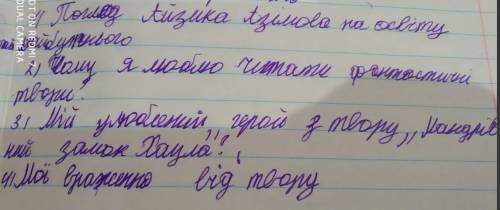 1) Погляд Айзека Азімова на освіту
майбутнього
2) Чому я люблю читати фантастичні
твори?
3) Мій улюблений герой з твору ,,Мандрів
ний замок Хаула?
4) Мої враження від твору
DUAL CAMERA